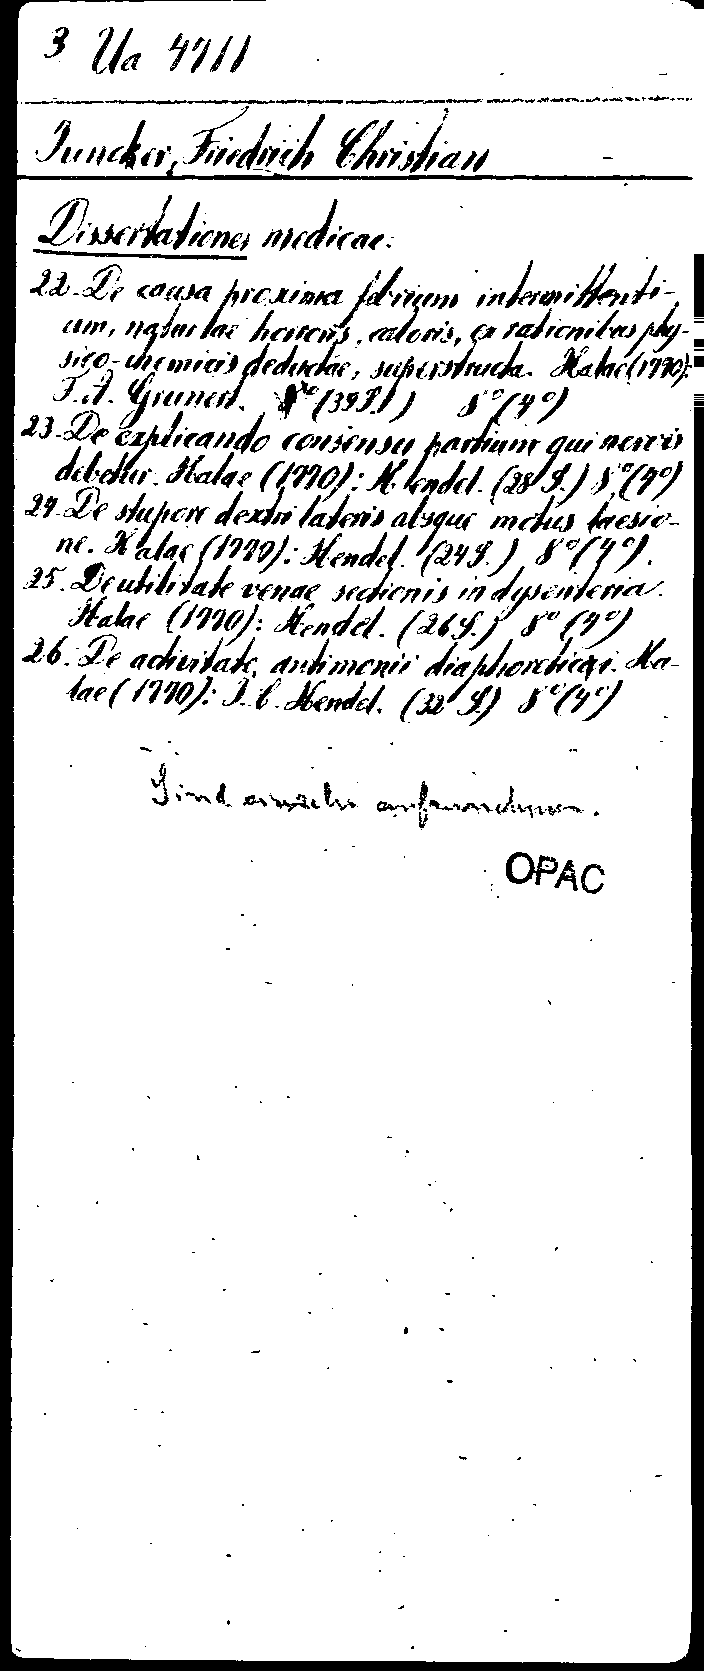 3 Ua 4711
Juncker, Friedrich Christian
Dissertationes medicae.
22. De causa proxima febrium intermittenti-
um, naturae horroris, caloris, ex rationibus phy-
sico-chemicis deductae, superstructa. Halae (1770):
J. A. Grunert. (39 S.) 8° (4°)
23. De explicando consensu partium qui nervis
debetur. Halae (1770): Hendel. (28 S.) 8° (4°)
24. De stupore dextri lateris absque motus laesio-
ne. Halae (1770): Hendel. (24 S.) 8° (4°).
25. De utilitate venae sectionis in dysenteria.
Halae (1770): Hendel. (26 S.) 8° (4°)
26. De activitate antimonii diaphoretici. Ha-
lae (1770): J. C. Hendel. (32 S.) 8° (4°)
Sind einzeln aufzunehmen.
OPAC